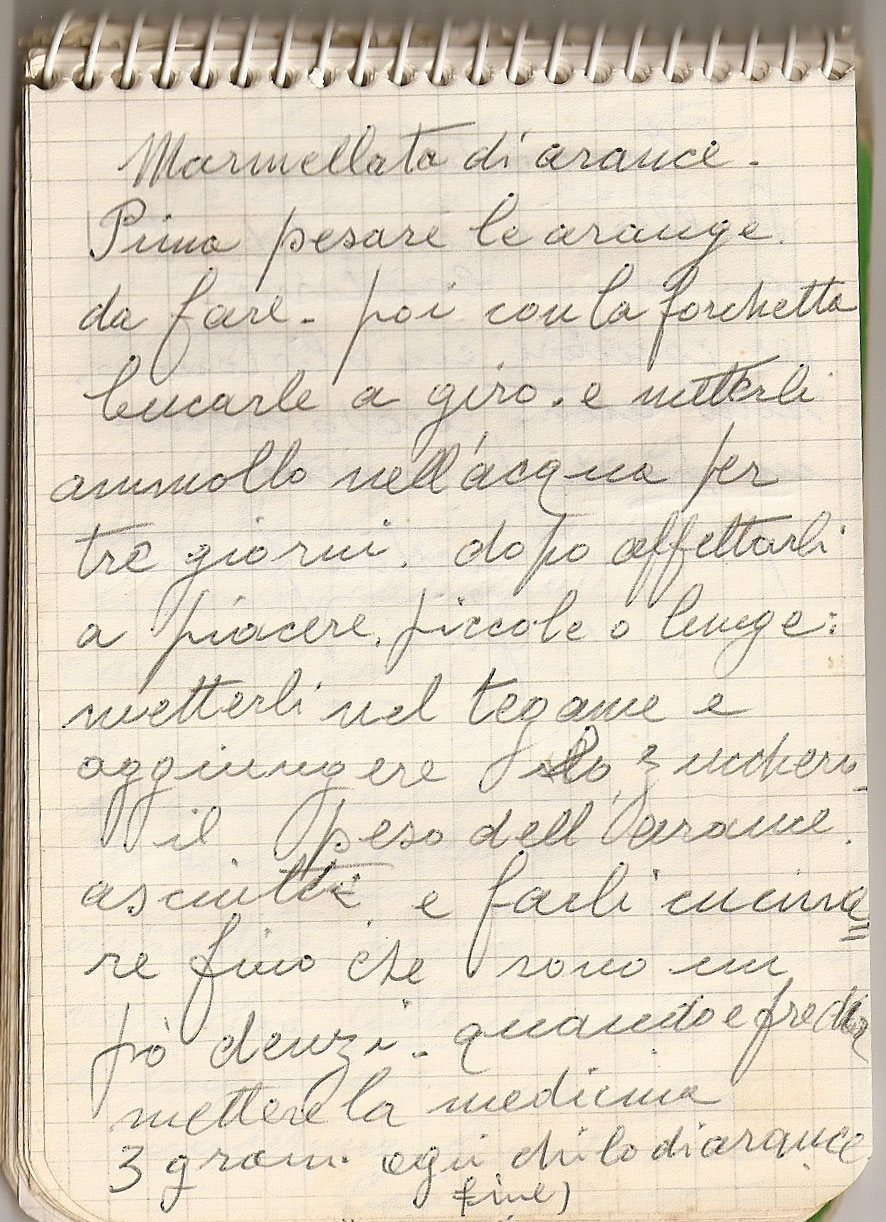 Marmellata di arance.
Prima pesare le arange.
da fare - poi con la forchetta
bucarle a giro. e metterli
ammollo nell'acqua per
tre giorni. dopo affettarli
a piacere, piccole o lunge:
metterli nel tegame e
aggiungere lo zucchero
il peso dell'arance
asciutte e farli cucina=
re fino che sono un
pò denzi - quando e fredda
mettere la medicina
3 gram. ogni chilo di arance
fine)